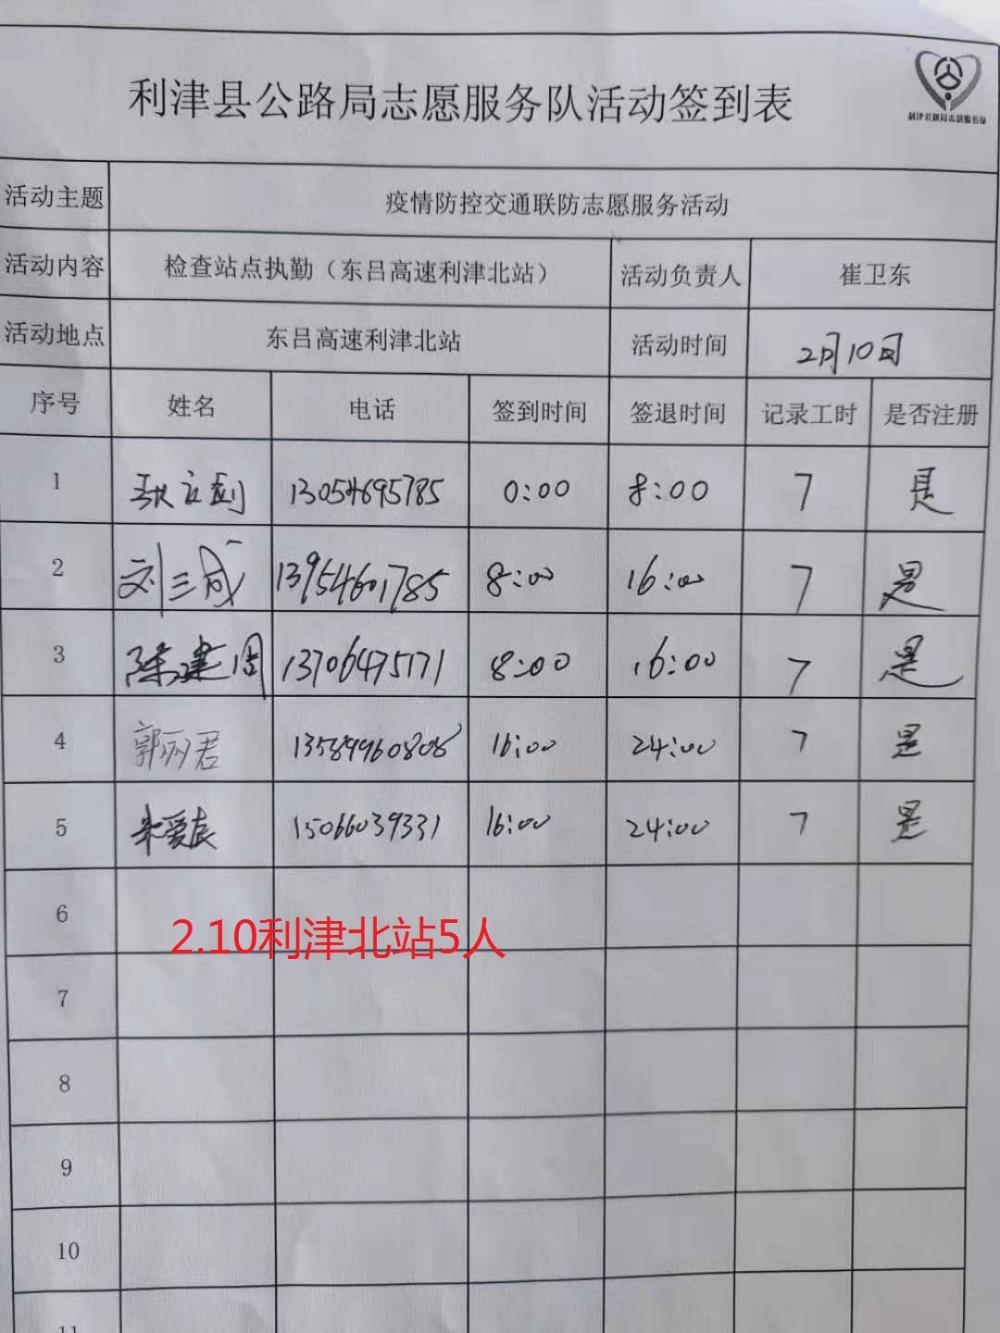 利津县公路局志愿服务队活动签到表
利津公路局志愿服务队
活动主题 疫情防控交通联防志愿服务活动
活动内容 检查站点执勤（东吕高速利津北站） 活动负责人 崔卫东
活动地点 东吕高速利津北站 活动时间 2月10日
序号 姓名 电话 签到时间 签退时间 记录工时 是否注册
1 13054695785 0:00 8:00 7 是
2 刘三成 13954601785 8:00 16:00 7 是
3 陈建国 13706475171 8:00 16:00 7 是
4 郭丽君 13589960808 16:00 24:00 7 是
5 15066039331 16:00 24:00 7 是
6
2.10利津北站5人
7
8
9
10
11